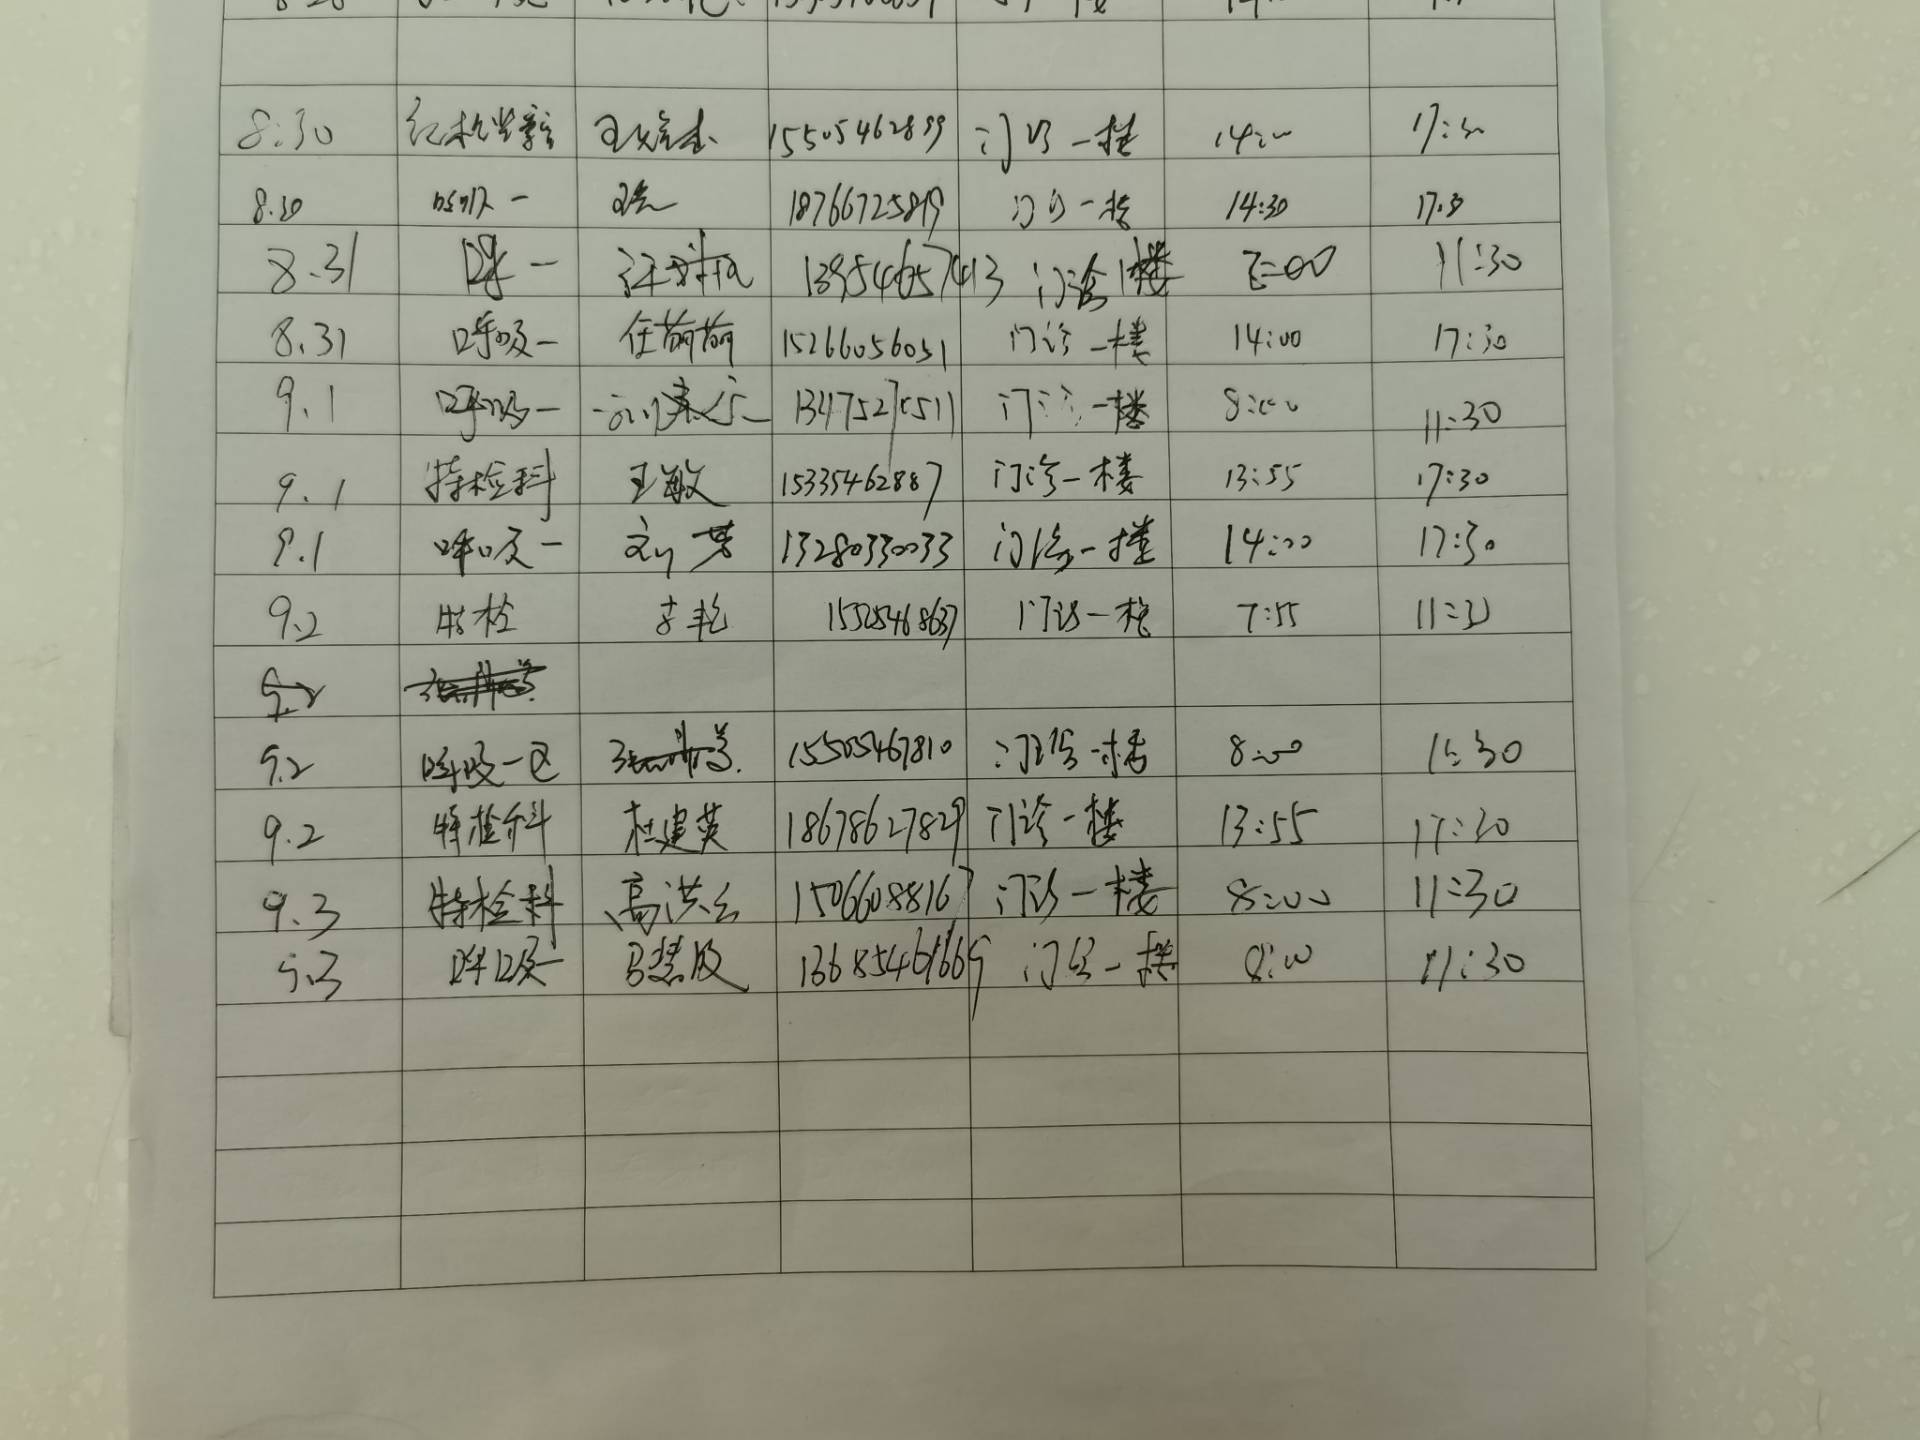 8:30 15505462899 门诊一楼 14:00 17:30
8.30 呼吸一 18766725819 门诊一楼 14:30 17:30
8.31 呼一 13954657413 门诊1楼 11:30
8.31 呼吸一 任荷荷 15266056051 门诊一楼 14:00 17:30
9.1 呼吸一 门诊一楼 8:00 11:30
9.1 特检科 王敏 15335462887 门诊一楼 13:55 17:30
9.1 呼吸一 刘芳 13280330033 门诊一楼 14:00 17:30
9.2 特检 李艳 门诊一楼 7:55 11:30
9.2
9.2 呼吸一区 15505467810 门诊一楼 8:00 11:30
9.2 特检科 杜建英 18678627829 门诊一楼 13:55 17:30
9.3 特检科 高洪云 15066088167 门诊一楼 8:00 11:30
9.3 呼吸一 13685461669 门诊一楼 8:00 11:30